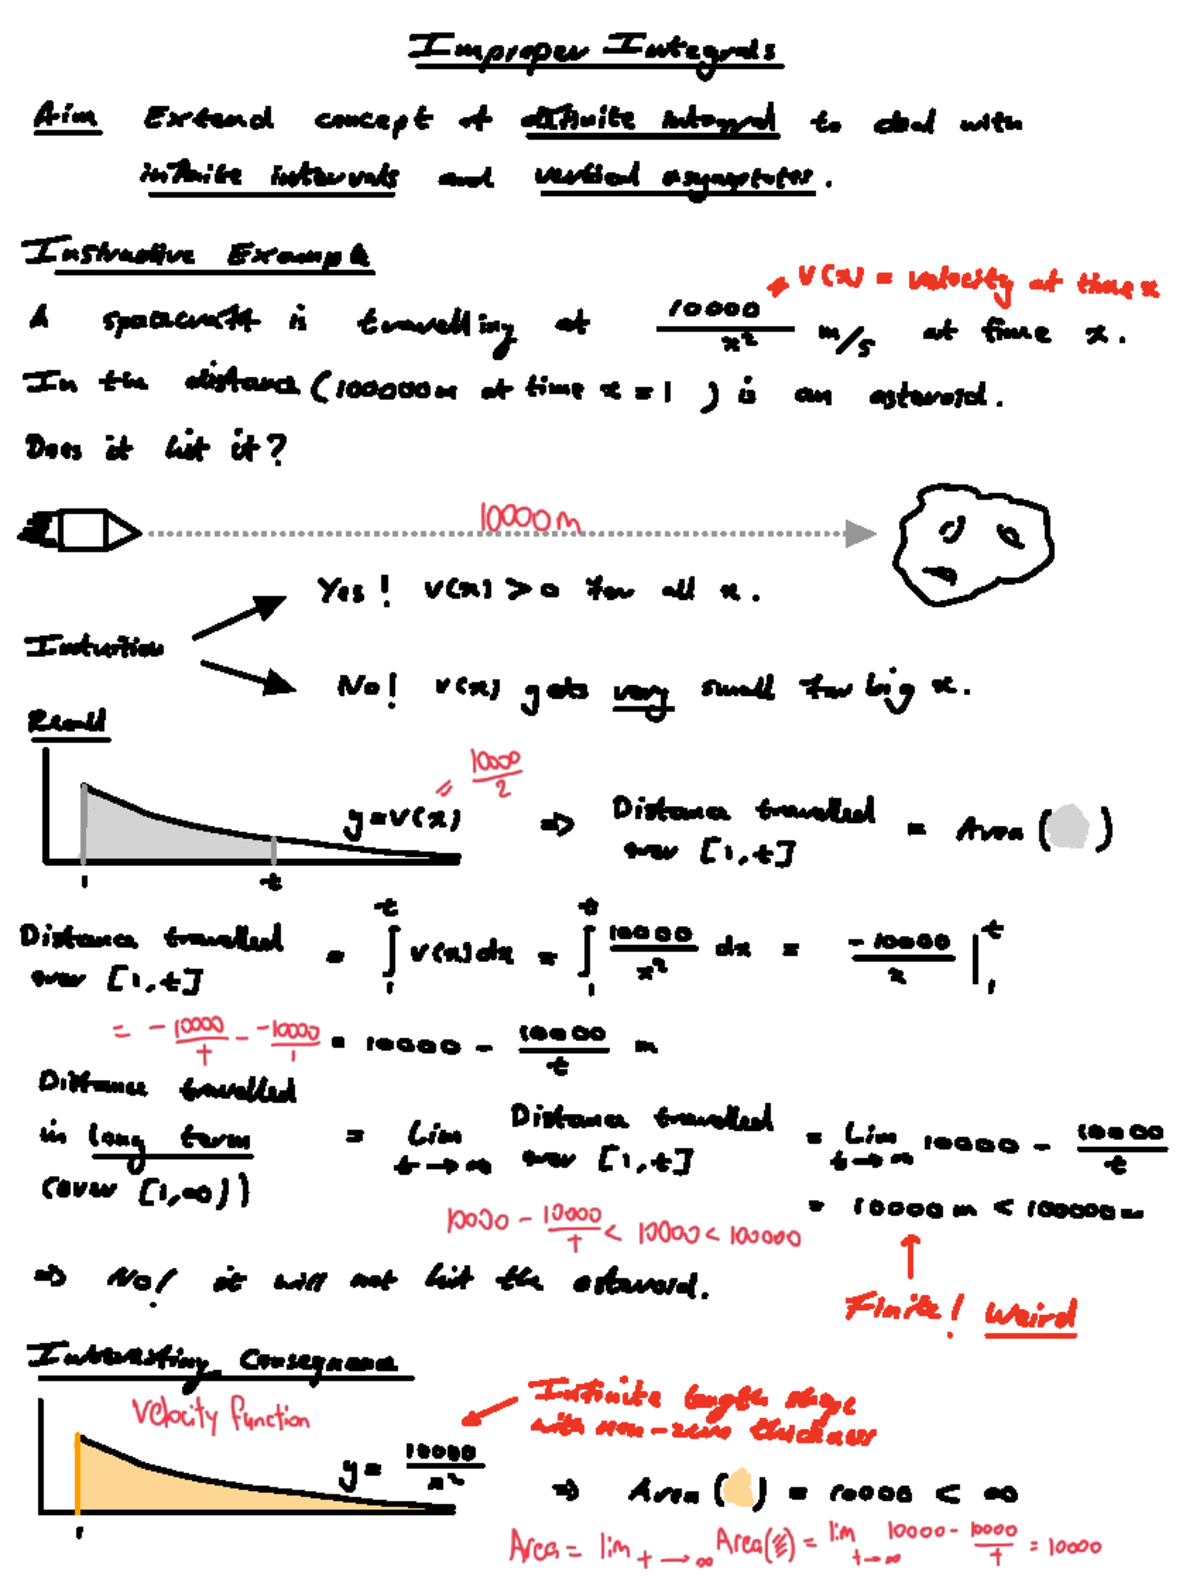 Improper Integrals
Aim Extend concept of definite integral to deal with
infinite intervals and vertical asymptotes.
Instructive Example
V(x) = velocity at time x
A spacecraft is travelling at 10000/x² m/s at time x.
In the distance (100000m at time x = 1) is an asteroid.
Does it hit it?
10000m
Yes! V(x) > 0 for all x.
Intuition
No! V(x) gets very small for big x.
Recall
y = V(x) = 10000/2 ⇒ Distance travelled over [1,t] = Area ( )
1 t
Distance travelled over [1,t] = ∫₁ᵗ V(x)dx = ∫₁ᵗ 10000/x² dx = -10000/x |₁ᵗ
= -10000/t - -10000/1 = 10000 - 10000/t m
Distance travelled in long term (over [1,∞)) = Lim t→∞ Distance travelled over [1,t] = Lim t→∞ 10000 - 10000/t
= 10000m < 100000m
10000 - 10000/t < 10000 < 100000
⇒ No! it will not hit the asteroid.
Finite! Weird
Interesting Consequence
Velocity function
Infinite length shape
with non-zero thickness
y = 10000/x² ⇒ Area ( ) = 10000 < ∞
1
Area = lim t→∞ Area( ) = lim t→∞ 10000 - 10000/t = 10000